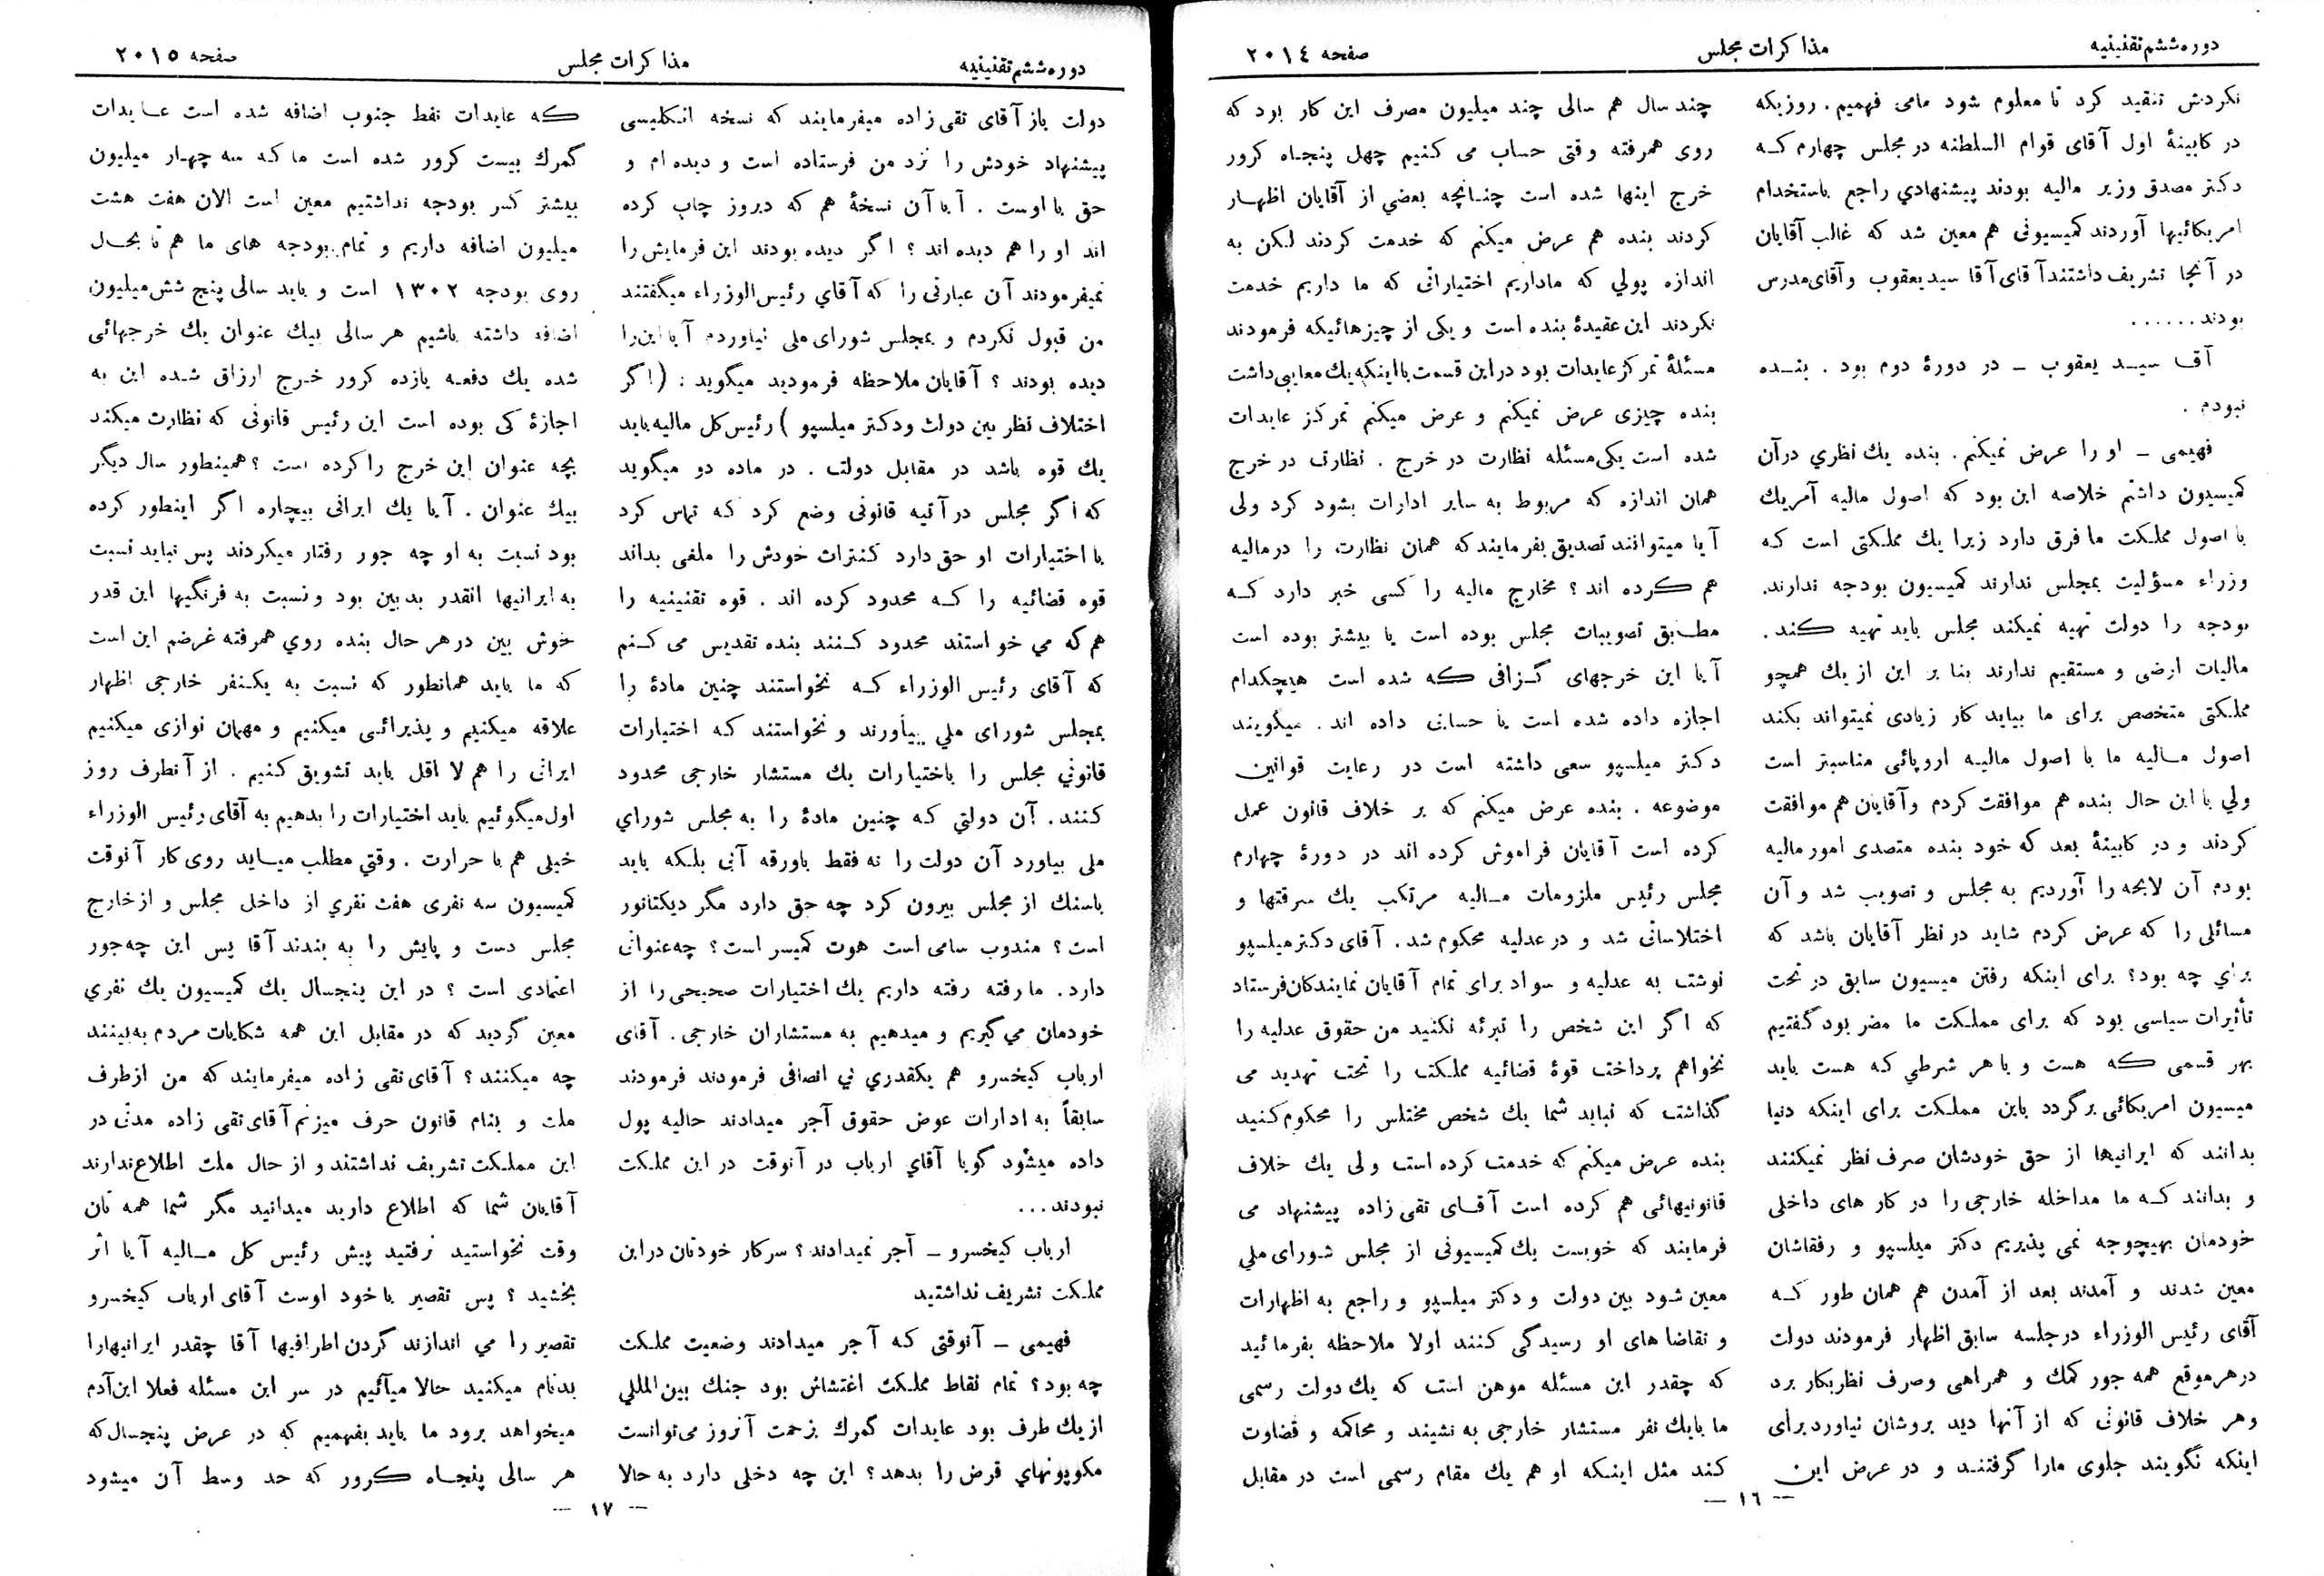 دوره ششم تقنینیه
مذاکرات مجلس
صفحه ۲۰۱٤
نکردش تنقید کرد تا معلوم شود مامی فهمیم. روزیکه
در کابینهٔ اول آقای قوام السلطنه در مجلس چهارم که
دکتر مصدق وزیر مالیه بودند پیشنهادي راجع باستخدام
امریکائیها آوردند کمیسیونی هم معین شد که غالب آقایان
در آنجا تشریف داشتند آقای آقا سید یعقوب و آقای مدرس
بودند......
آقا سید یعقوب ـ در دورهٔ دوم بود . بنده
نبودم .
فهیمی ـ او را عرض نمیکنم. بنده یك نظري در آن
کمیسیون داشتم خلاصه این بود که اصول مالیه آمریك
با اصول مملکت ما فرق دارد زیرا یك مملکتی است که
وزراء مسؤلیت بمجلس ندارند کمیسیون بودجه ندارند.
بودجه را دولت تهیه نمیکند مجلس باید تهیه کند.
مالیات ارضی و مستقیم ندارند بنا بر این از یك همچو
مملکتی متخصص برای ما بیاید کار زیادی نمیتواند بکند
اصول مالیه ما با اصول مالیه اروپائی مناسبتر است
ولي با این حال بنده هم موافقت کردم و آقایان هم موافقت
کردند و در کابینهٔ بعد که خود بنده متصدی امور مالیه
بودم آن لایحه را آوردیم به مجلس و تصویب شد و آن
مسائلی را که عرض کردم شاید در نظر آقایان باشد که
براي چه بود؟ برای اینکه رفتن میسیون سابق در تحت
تأثیرات سیاسی بود که برای مملکت ما مضر بود گفتیم
بهر قسمی که هست و با هر شرطي که هست باید
میسیون امریکائی برگردد باین مملکت برای اینکه دنیا
بدانند که ایرانیها از حق خودشان صرف نظر نمیکنند
و بدانند که ما مداخله خارجی را در کار های داخلی
خودمان بهیچوجه نمی پذیریم دکتر میلسپو و رفقاشان
معین شدند و آمدند بعد از آمدن هم همان طور که
آقای رئیس الوزراء در جلسه سابق اظهار فرمودند دولت
در هر موقع همه جور کمك و همراهی و صرف نظر بکار برد
و هر خلاف قانونی که از آنها دید بروشان نیاورد برأی
اینکه نگویند جلوی مارا گرفتند و در عرض این
چند سال هم سالی چند میلیون مصرف این کار برد که
روی همرفته وقتی حساب می کنیم چهل پنجاه کرور
خرج اینها شده است چنانچه بعضي از آقایان اظهار
کردند بنده هم عرض میکنم که خدمت کردند لکن به
اندازه پولي که ماداریم اختیاراتی که ما داریم خدمت
نکردند این عقیدهٔ بنده است و یکی از چیزهائیکه فرمودند
مسئلهٔ تمرکز عایدات بود در این قسمت با اینکه یك معایبی داشت
بنده چیزی عرض نمیکنم و عرض میکنم تمرکز عایدات
شده است یکی مسئله نظارت در خرج . نظارت در خرج
همان اندازه که مربوط به سایر ادارات بشود کرد ولی
آیا میتوانند تصدیق بفرمایند که همان نظارت را در مالیه
هم کرده اند ؟ مخارج مالیه را کسی خبر دارد که
مطابق تصویبات مجلس بوده است یا بیشتر بوده است
آیا این خرجهای گزافی که شده است هیچکدام
اجازه داده شده است یا حسابی داده اند . میگویند
دکتر میلسپو سعی داشته است در رعایت قوانین
موضوعه . بنده عرض میکنم که بر خلاف قانون عمل
کرده است آقایان فراموش کرده اند در دورهٔ چهارم
مجلس رئیس ملزومات مالیه مرتکب یك سرقتها و
اختلاساتی شد و در عدلیه محکوم شد . آقای دکتر میلسپو
نوشت به عدلیه و سواد برای تمام آقایان نمایندگان فرستاد
که اگر این شخص را تبرئه نکنید من حقوق عدلیه را
نخواهم پرداخت قوهٔ قضائیه مملکت را تحت تهدید می
گذاشت که نباید شما یك شخص مختلس را محکوم کنید
بنده عرض میکنم که خدمت کرده است ولی یك خلاف
قانونیهائی هم کرده است آقای تقی زاده پیشنهاد می
فرمایند که خوبست یك کمیسیونی از مجلس شورای ملي
معین شود بین دولت و دکتر میلسپو و راجع به اظهارات
و تقاضا های او رسیدگی کنند اولا ملاحظه بفرمائید
که چقدر این مسئله موهن است که یك دولت رسمی
ما با یك نفر مستشار خارجی به نشیند و محاکمه و قضاوت
کند مثل اینکه او هم یك مقام رسمی است در مقابل
— ۱٦ —
دوره ششم تقنینیه
مذاکرات مجلس
صفحه ۲۰۱٥
دولت باز آقای تقی زاده میفرمایند که نسخه انگلیسی
پیشنهاد خودش را نزد من فرستاده است و دیده ام و
حق با اوست . آیا آن نسخهٔ هم که دیروز چاپ کرده
اند او را هم دیده اند ؟ اگر دیده بودند این فرمایش را
نمیفرمودند آن عبارتی را که آقاي رئیس الوزراء میگفتند
من قبول نکردم و بمجلس شورای ملی نیاوردم آیا این را
دیده بودند ؟ آقایان ملاحظه فرمودید میگوید : (اگر
اختلاف نظر بین دولت و دکتر میلسپو ) رئیس کل مالیه باید
یك قوه باشد در مقابل دولت . در ماده دو میگوید
که اگر مجلس در آتیه قانونی وضع کرد که تماس کرد
با اختیارات او حق دارد کنترات خودش را ملغی بداند
قوه قضائیه را که محدود کرده اند . قوه تقنینیه را
هم که مي خواستند محدود کنند بنده تقدیس می کنم
که آقای رئیس الوزراء که نخواستند چنین مادهٔ را
بمجلس شورای ملي بیاورند و نخواستند که اختیارات
قانوني مجلس را باختیارات یك مستشار خارجی محدود
کنند. آن دولتي که چنین مادهٔ را به مجلس شوراي
ملی بیاورد آن دولت را نه فقط باورقه آبی بلکه باید
باسنك از مجلس بیرون کرد چه حق دارد مگر دیکتاتور
است ؟ مندوب سامی است هوت کمیسر است ؟ چه عنوانی
دارد . ما رفته رفته داریم یك اختیارات صحیحی را از
خودمان مي گیریم و میدهیم به مستشاران خارجی. آقای
ارباب کیخسرو هم یکقدري بي انصافی فرمودند فرمودند
سابقاً به ادارات عوض حقوق آجر میدادند حالیه پول
داده میشود گویا آقاي ارباب در آنوقت در این مملکت
نبودند...
ارباب کیخسرو ـ آجر نمیدادند ؟ سرکار خودتان در این
مملکت تشریف نداشتید
فهیمی ـ آنوقتی که آجر میدادند وضعیت مملکت
چه بود؟ تمام نقاط مملکت اغتشاش بود جنك بین المللي
از یك طرف بود عایدات گمرك بزحمت آنروز می توانست
مکوپونهاي قرض را بدهد ؟ این چه دخلی دارد به حالا
که عایدات نفط جنوب اضافه شده است عایدات
گمرك بیست کرور شده است ما که سه چهار میلیون
بیشتر کسر بودجه نداشتیم معین است الان هفت هشت
میلیون اضافه داریم و تمام بودجه های ما هم تا بحال
روی بودجه ۱۳۰۲ است و باید سالی پنج شش میلیون
اضافه داشته باشیم هر سالی بیك عنوان یك خرجهائی
شده یك دفعه یازده کرور خرج ارزاق شده این به
اجازهٔ کی بوده است این رئیس قانونی که نظارت میکند
بچه عنوان این خرج را کرده است ؟ همینطور سال دیگر
بیك عنوان . آیا یك ایرانی بیچاره اگر اینطور کرده
بود نسبت به او چه جور رفتار میکردند پس نباید نسبت
به ایرانیها انقدر بدبین بود و نسبت به فرنگیها این قدر
خوش بین در هر حال بنده روي همرفته غرضم این است
که ما باید همانطور که نسبت به یکنفر خارجی اظهار
علاقه میکنیم و پذیرائی میکنیم و مهمان نوازی میکنیم
ایرانی را هم لا اقل باید تشویق کنیم . از آنطرف روز
اول میگوئیم باید اختیارات را بدهیم به آقای رئیس الوزراء
خیلی هم با حرارت . وقتي مطلب میاید روی کار آنوقت
کمیسیون سه نفری هفت نفري از داخل مجلس و از خارج
مجلس دست و پایش را به بندند آقا پس این چه جور
اعتمادی است ؟ در این پنجسال یك کمیسیون یك نفري
معین کردید که در مقابل این همه شکایات مردم به بینند
چه میکنند ؟ آقای تقی زاده میفرمایند که من از طرف
ملت و بنام قانون حرف میزنم آقای تقی زاده مدتی در
این مملکت تشریف نداشتند و از حال ملت اطلاع ندارند
آقایان شما که اطلاع دارید میدانید مگر شما همه تان
وقت نخواستید نرفتید پیش رئیس کل مالیه آیا اثر
بخشید ؟ پس تقصیر با خود اوست آقای ارباب کیخسرو
تقصیر را می اندازند گردن اطرافیها آقا چقدر ایرانیهارا
بدنام میکنید حالا میآئیم در سر این مسئله فعلا این آدم
میخواهد برود ما باید بفهمیم که در عرض پنجسال که
هر سالی پنجاه کرور که حد وسط آن میشود
— ۱۷ —